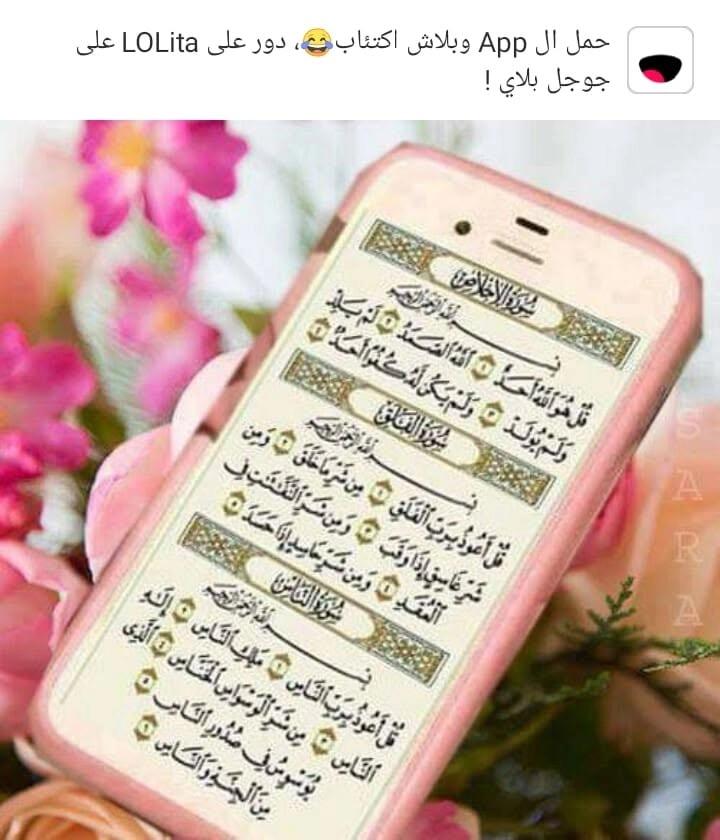 حمل ال App وبلاش اكتئاب😂، دور على LOLita على
جوجل بلاي !
سُورَةُ الإِخْلَاصِ
بِسْمِ اللَّهِ الرَّحْمَٰنِ الرَّحِيمِ
قُلْ هُوَ اللَّهُ أَحَدٌ ١ اللَّهُ الصَّمَدُ ٢ لَمْ يَلِدْ
وَلَمْ يُولَدْ ٣ وَلَمْ يَكُن لَّهُ كُفُوًا أَحَدٌ ٤
سُورَةُ الفَلَقِ
بِسْمِ اللَّهِ الرَّحْمَٰنِ الرَّحِيمِ
قُلْ أَعُوذُ بِرَبِّ الْفَلَقِ ١ مِن شَرِّ مَا خَلَقَ ٢ وَمِن
شَرِّ غَاسِقٍ إِذَا وَقَبَ ٣ وَمِن شَرِّ النَّفَّٰثَٰتِ فِي
الْعُقَدِ ٤ وَمِن شَرِّ حَاسِدٍ إِذَا حَسَدَ ٥
سُورَةُ النَّاسِ
بِسْمِ اللَّهِ الرَّحْمَٰنِ الرَّحِيمِ
قُلْ أَعُوذُ بِرَبِّ النَّاسِ ١ مَلِكِ النَّاسِ ٢ إِلَٰهِ
النَّاسِ ٣ مِن شَرِّ الْوَسْوَاسِ الْخَنَّاسِ ٤ الَّذِي
يُوَسْوِسُ فِي صُدُورِ النَّاسِ ٥
مِنَ الْجِنَّةِ وَالنَّاسِ ٦
SARA